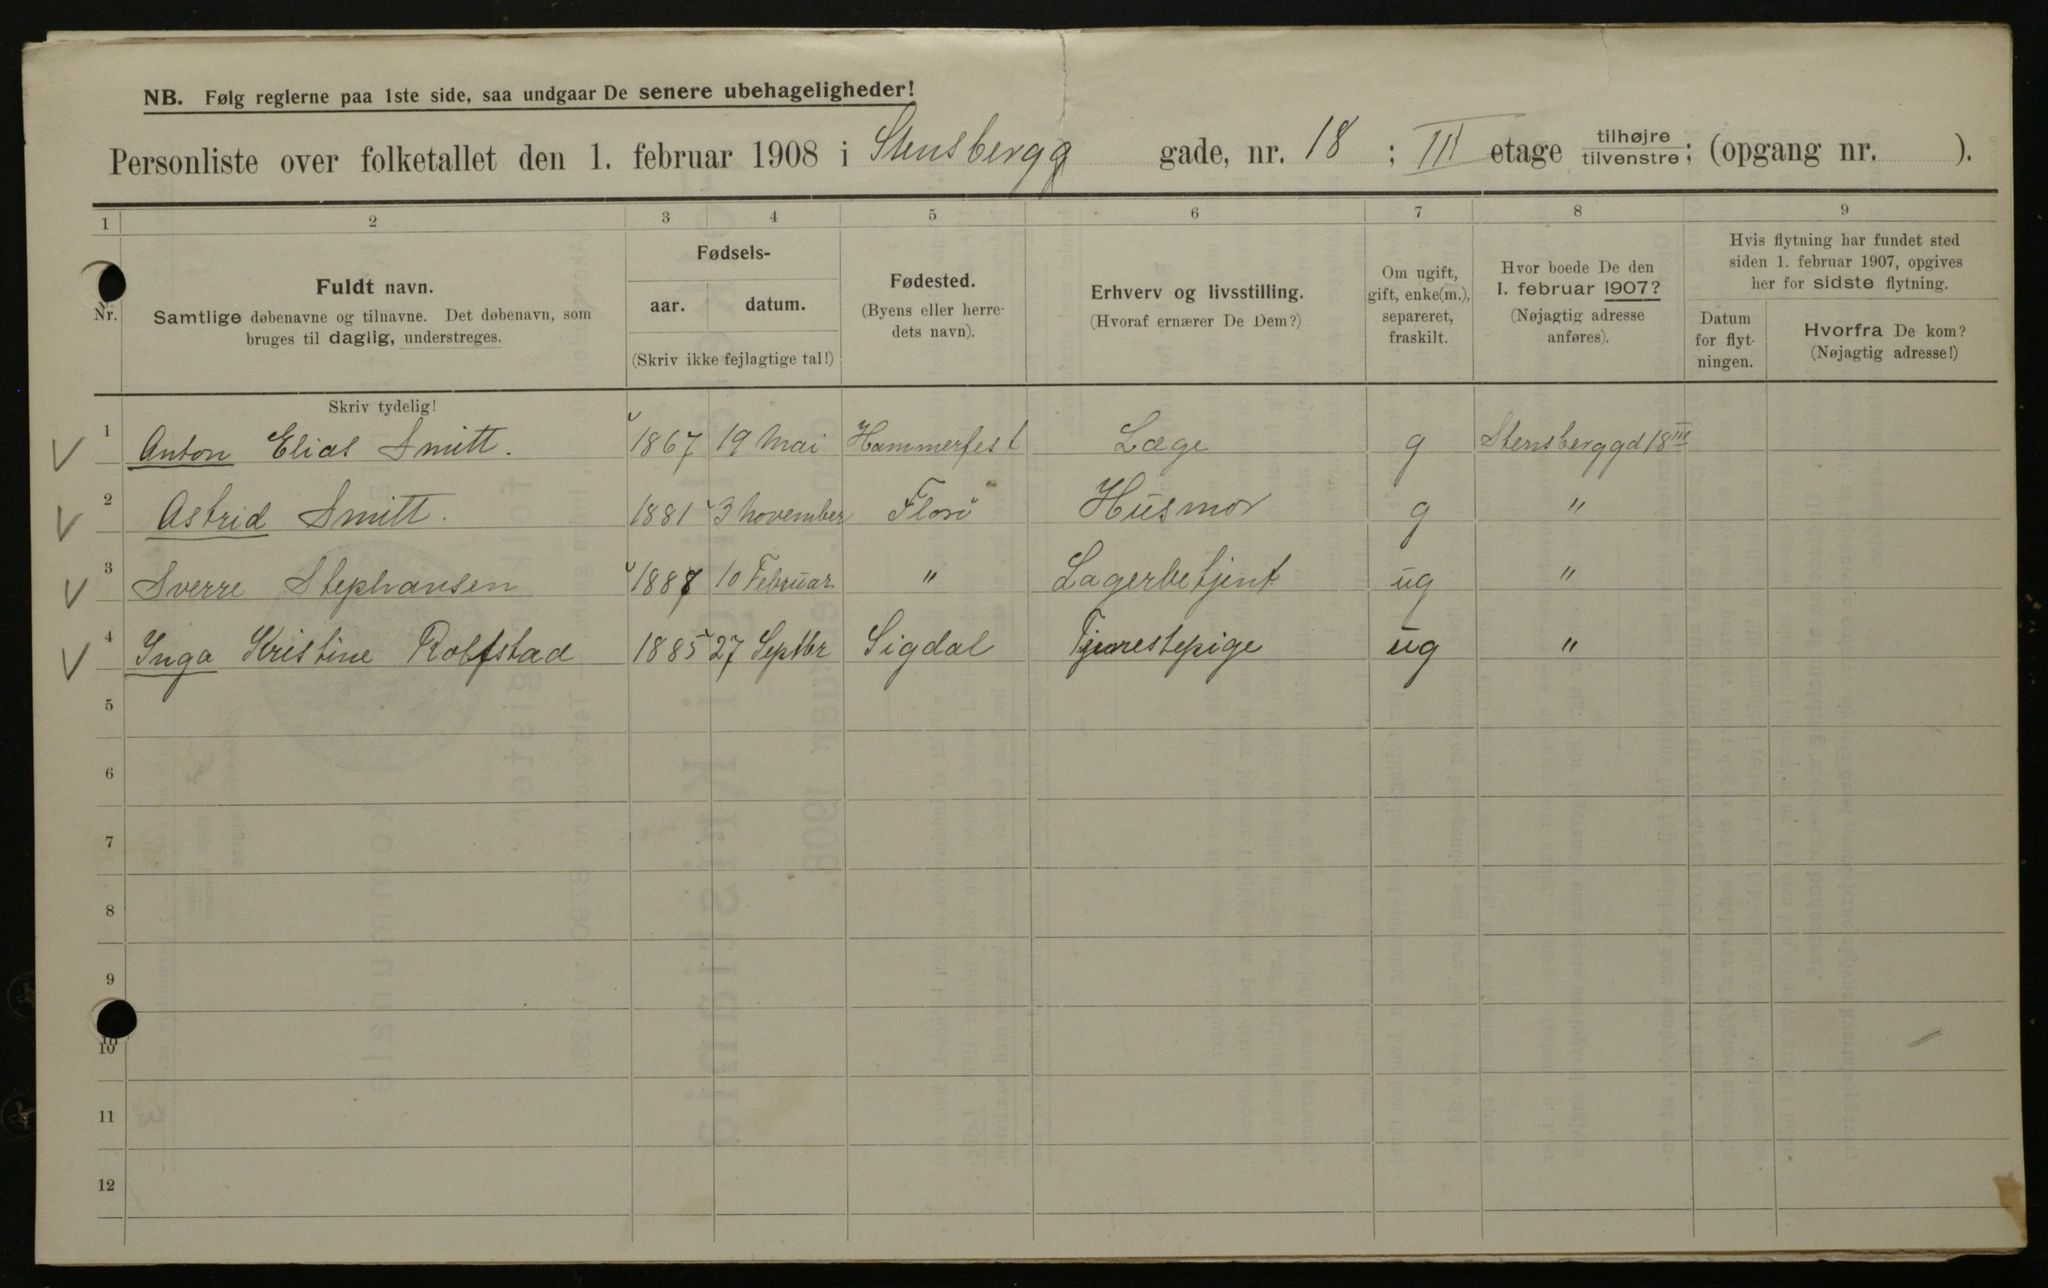 NB. Følg reglerne paa 1ste side, saa undgaar De senere ubehageligheder!
Personliste over folketallet den 1. februar 1908 i Stensbergg gade, nr. 18 ; III etage tilhøjre tilvenstre; (opgang nr. ).
1 2 3 4 5 6 7 8 9
Nr.
Fuldt navn.
Samtlige døbenavne og tilnavne. Det døbenavn, som
bruges til daglig, understreges.
Fødsels-
aar. datum.
(Skriv ikke fejlagtige tal!)
Fødested.
(Byens eller herre-
dets navn).
Erhverv og livsstilling.
(Hvoraf ernærer De Dem?)
Om ugift,
gift, enke(m.),
separeret,
fraskilt.
Hvor boede De den
1. februar 1907?
(Nøjagtig adresse
anføres).
Hvis flytning har fundet sted
siden 1. februar 1907, opgives
her for sidste flytning.
Datum
for flyt-
ningen.
Hvorfra De kom?
(Nøjagtig adresse!)
Skriv tydelig!
1 Anton Elias Smitt. 1867 19 Mai Hammerfest Læge g Stensberggd 18 III
2 Astrid Smitt. 1881 3 November Florö Husmor g "
3 Sverre Stephansen 1887 10 Februar. " Lagerbetjent ug "
4 Inga Kristine Rolfstad 1885 27 Septbr Sigdal Tjenestepige ug "
5
6
7
8
9
10
11
12